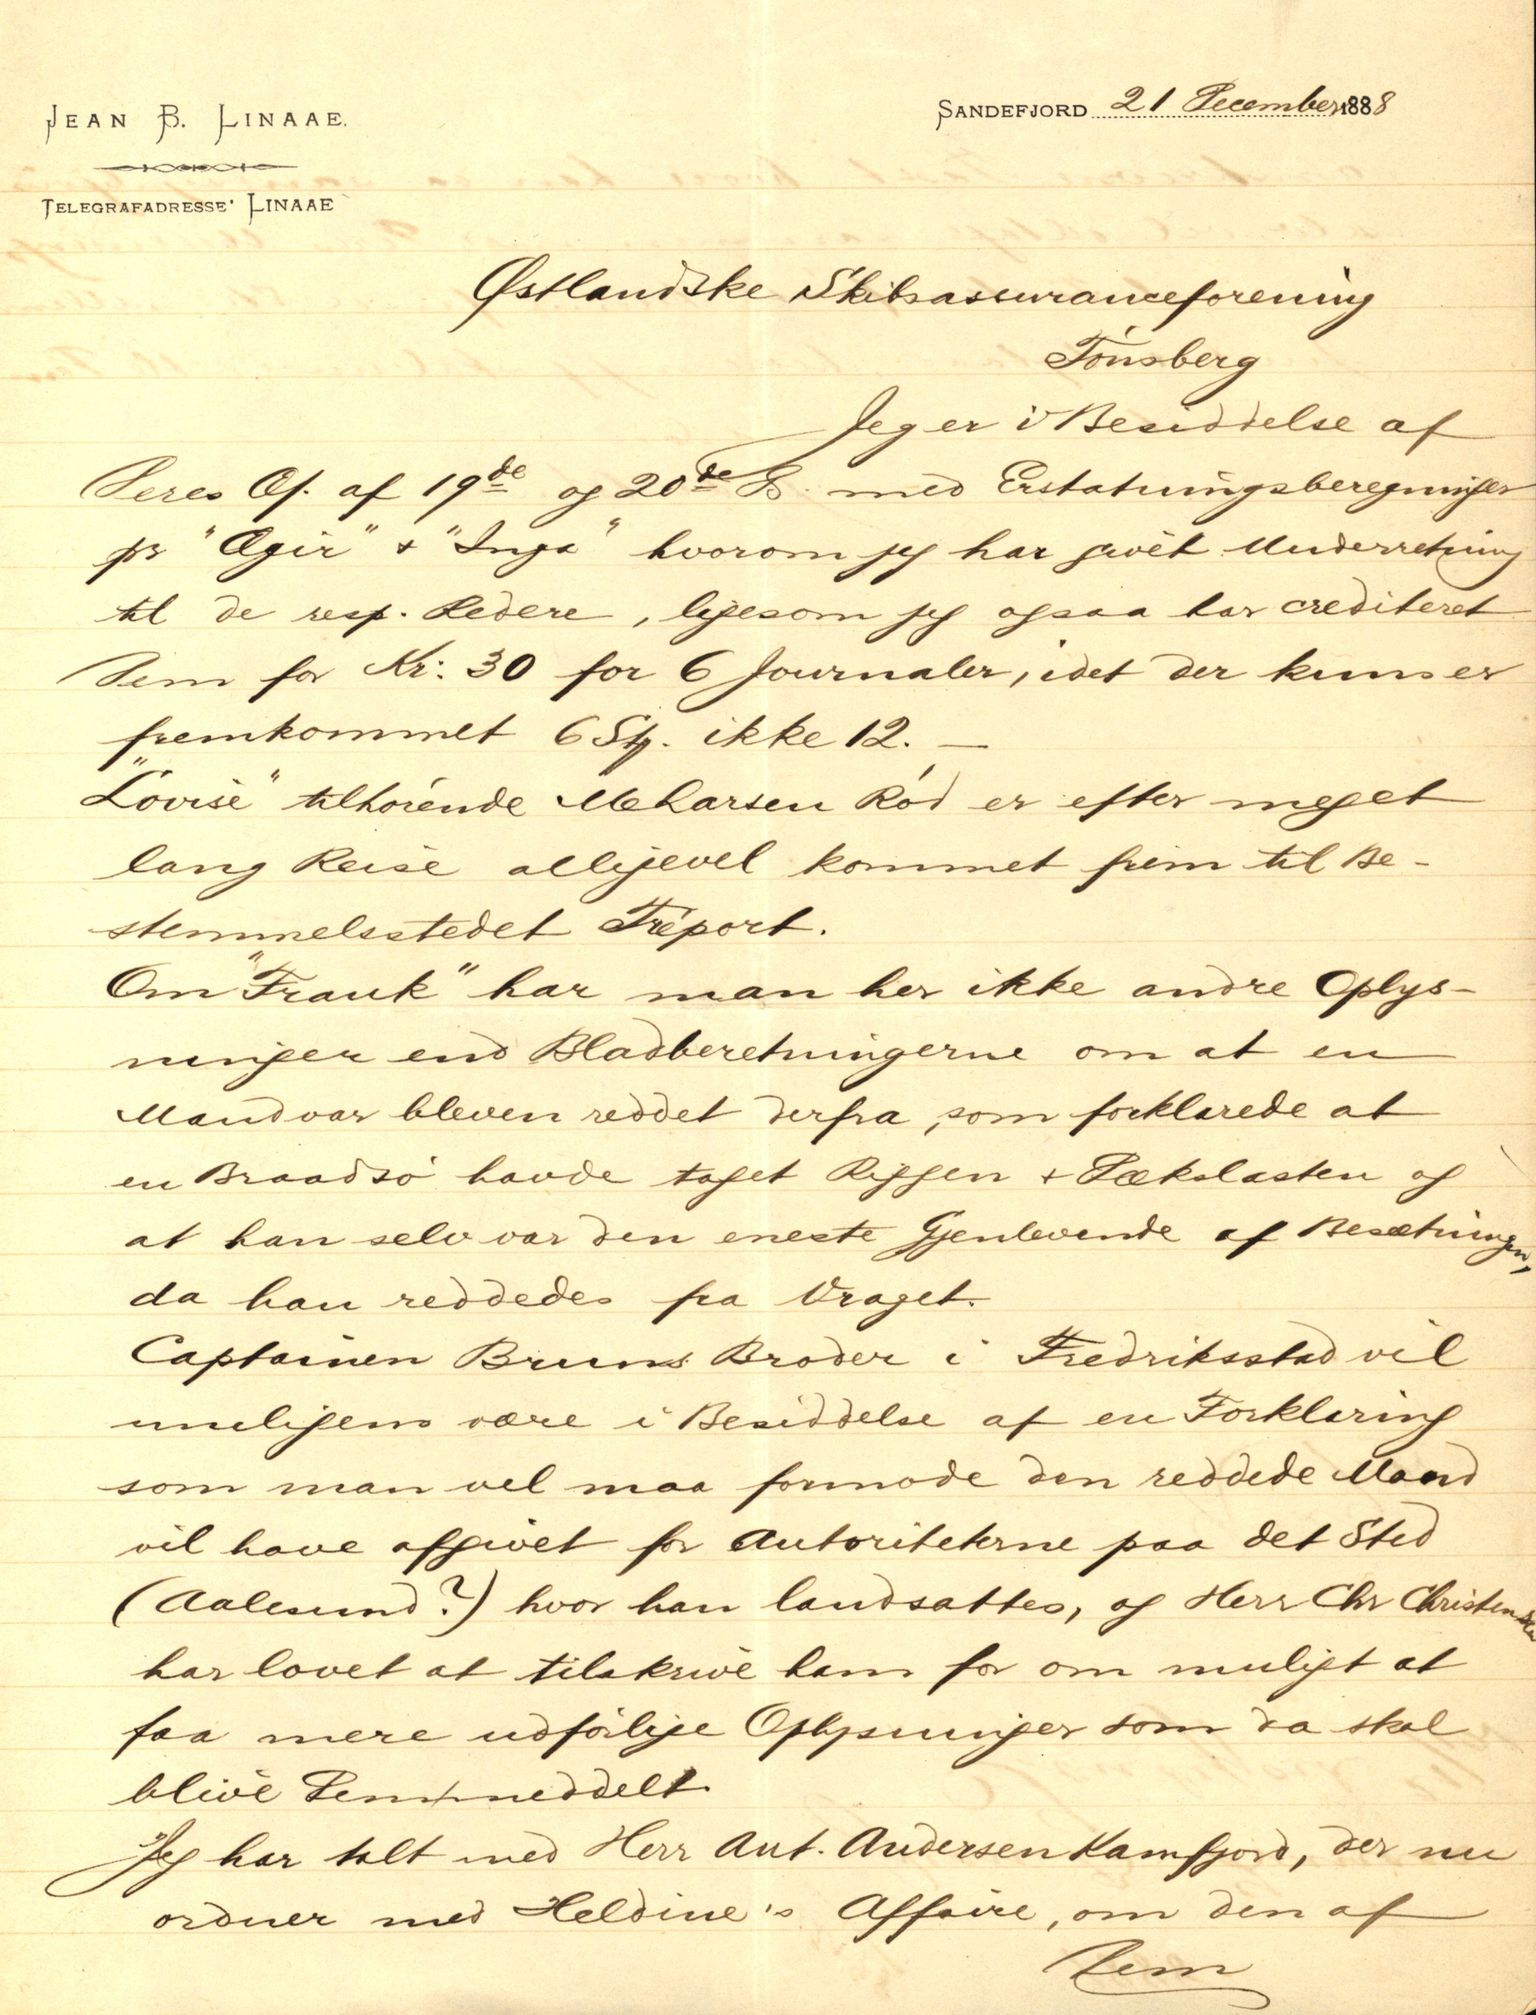 JEAN B. LINAAE.
SANDEFJORD 21 December 1888
TELEGRAFADRESSE: LINAAE
Østlandske Skibsassuranceforening
Tönsberg
Jeg er i Besiddelse af
Deres Ef. af 19de og 20de ds. med Erstatningsberegninger
pr "Ægir" & "Inga" hvorom jeg har givet Underretning
til de resp. Redere, ligesom jeg ogsaa har crediteret
Dem for Kr: 30 for 6 Journaler, idet der kun er
fremkommet 6 Stk. ikke 12. —
"Lovise" tilhörende M Larsen Röd er efter meget
lang Reise alligevel kommet frem til Be-
stemmelsstedet Tréport.
Om "Frank" har man her ikke andre Oplys-
ninger end Bladberetningerne om at en
Mand var bleven reddet derfra, som forklarede at
en Braadsö havde taget Riggen & Dækslasten og
at han selv var den eneste Gjenlevende af Besætningen,
da han reddedes fra Vraget.
Captainen Bruns Broder i Fredriksstad vil
muligens være i Besiddelse af en Forklaring
som man vel maa formode den reddede Mand
vil have afgivet for Autoriteterne paa det Sted
(Aalesund?) hvor han landsattes, og Herr Chr Christensen
har lovet at tilskrive ham for om muligt at
faa mere udförlige Oplysninger som da skal
blive Dem meddelt.
Jeg har talt med Herr Ant. Andersen Kamfjord, der nu
ordner med Heldine's Affaire, om den af
Dem